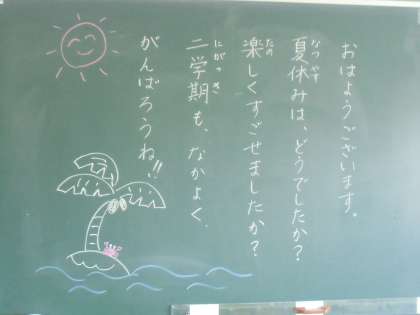 おはようございます。
夏休みは、どうでしたか?
楽しくすごせましたか?
二学期も、なかよく、
がんばろうね!!